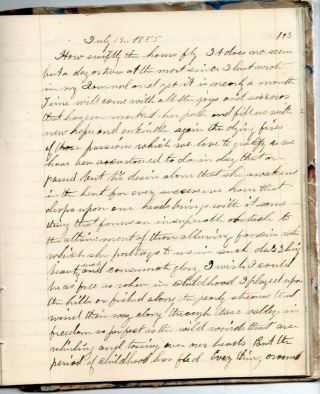 July 13. 1885 103
How swiftly the hours fly It does not seem
but a day or two at the most since I last wrote
in my Journal and yet it is nearly a month
Time will come with all the joys and sorrows
that have marked her path and fill us with
new hopes and enkindle again the dying fires
of those passions which we love to gratify as we
have been accustomed to do in days that are
passed But the desire alone that she awakens
in the heart for every successive hour that
drops upon our heads brings with it some
thing that forms an obstacle to
the attainment of those alluring fancies
which she portrays to us in such
beauty and consummate glory I wish I could
be as free as when in childhood I played upon
the hills or fished along the pearly streams that
wind their way along through these valleys in
freedom as perfect as the wild winds that are
whirling and tossing over our heads But the
period of childhood has fled Every thing around